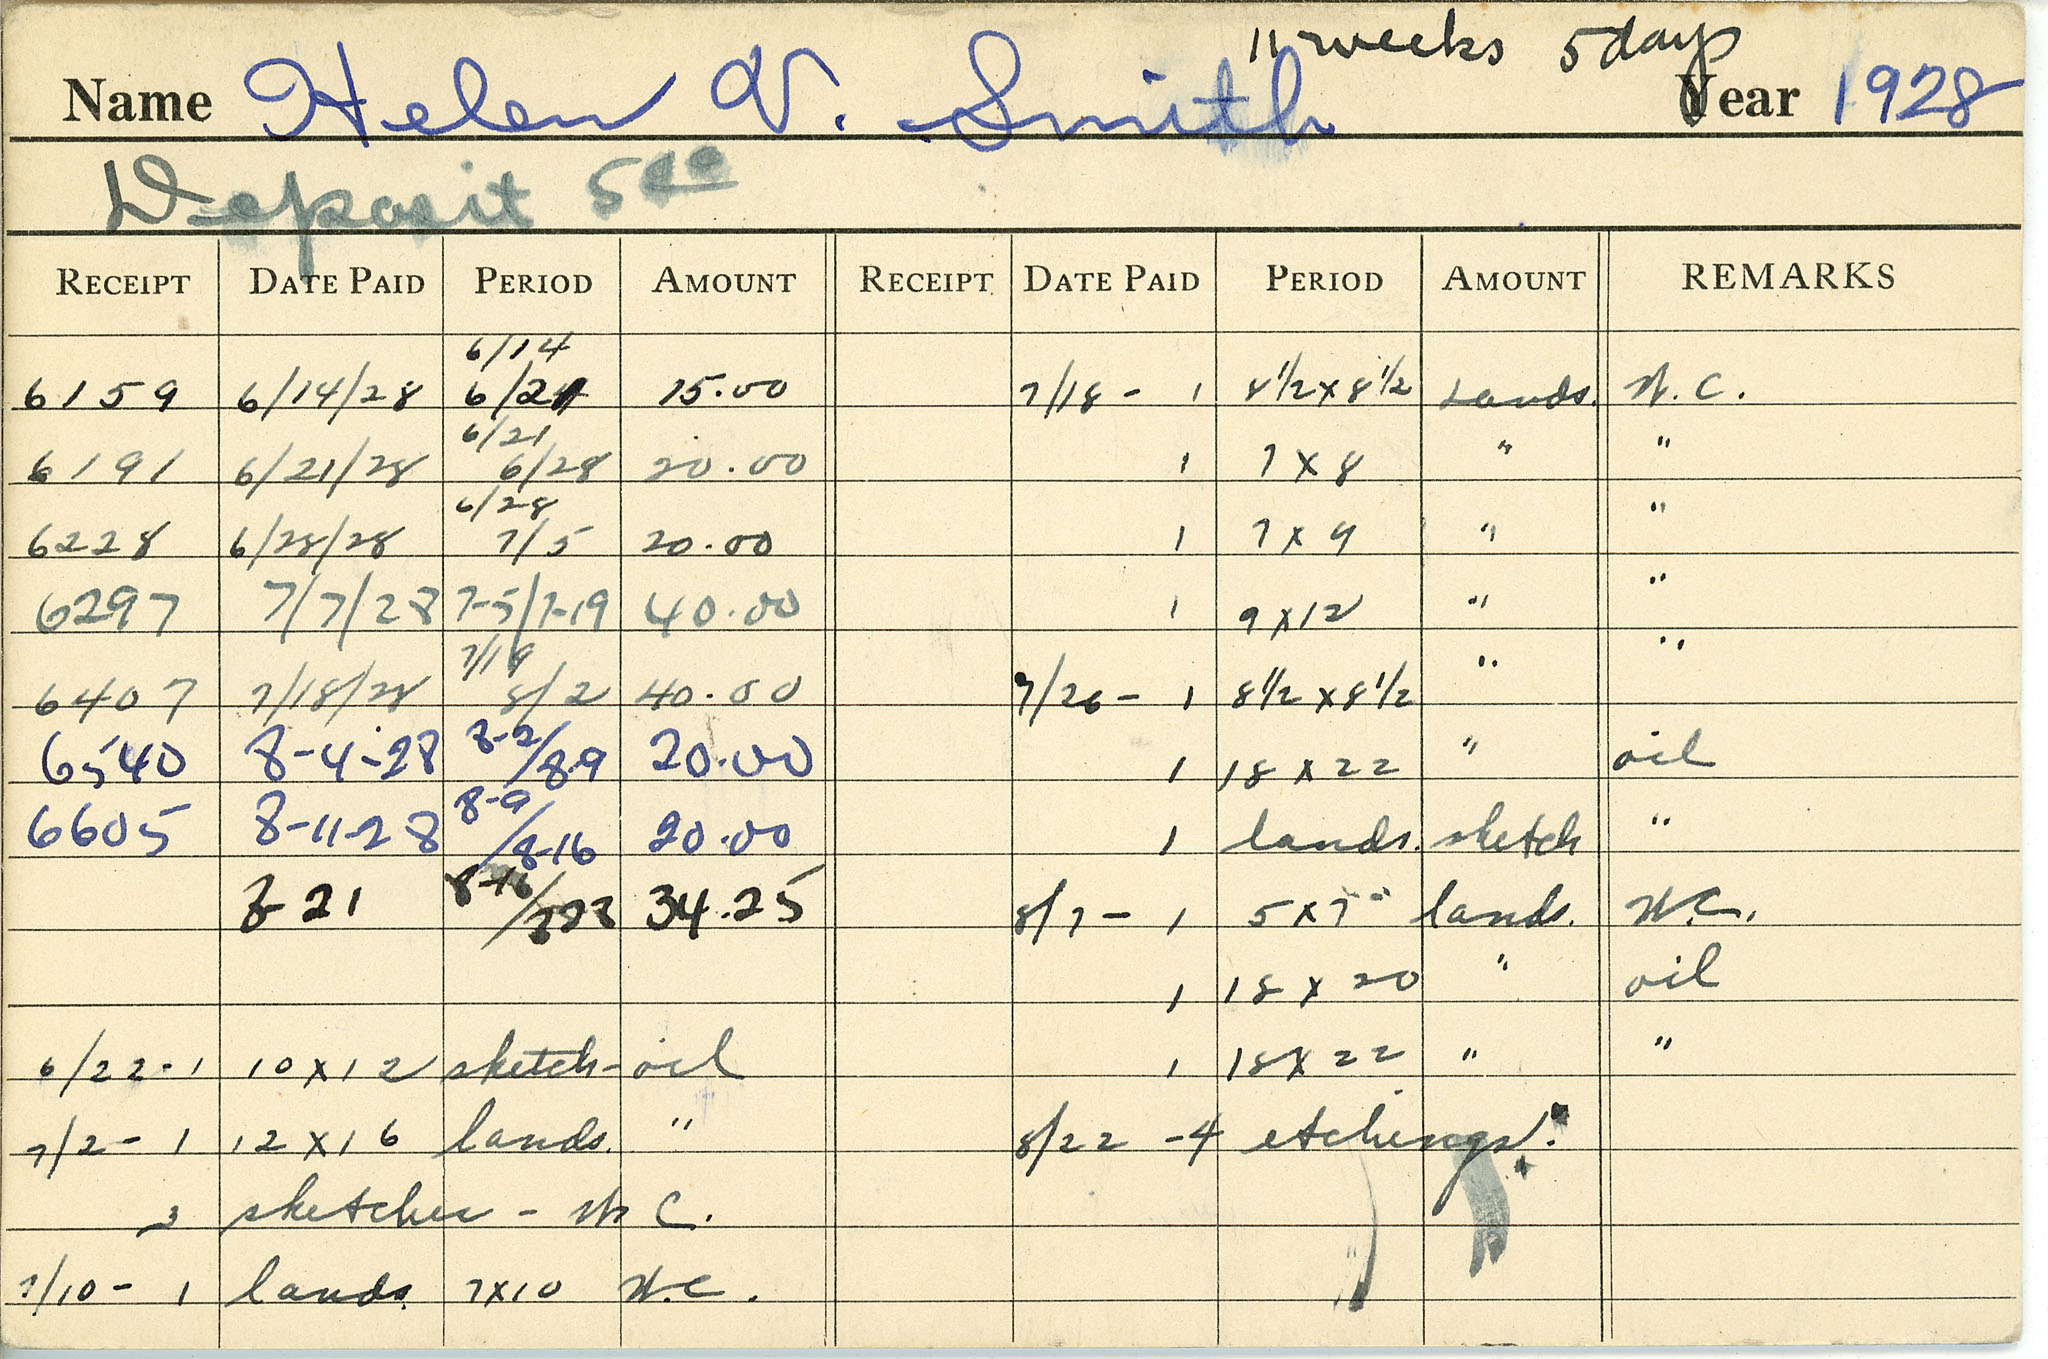 11 weeks 5 days
Name Helen V. Smith Year 1928
Deposit 5 00
RECEIPT DATE PAID PERIOD AMOUNT RECEIPT DATE PAID PERIOD AMOUNT REMARKS
6/14
6159 6/14/28 6/21 15.00 7/18 - 1 8 1/2 x 8 1/2 Lands. W.C.
6/21
6191 6/21/28 6/28 20.00 1 7 x 8 " "
6/28
6228 6/28/28 7/5 20.00 1 7 x 9 " "
6297 7/7/28 7-5/7-19 40.00 1 9 x 12 " "
7/19
6407 7/18/28 8/2 40.00 7/26 - 1 8 1/2 x 8 1/2 " "
6540 8-4-28 8-2/8-9 20.00 1 18 x 22 " oil
6605 8-11-28 8-9/8-16 20.00 1 lands. sketch "
8-21 8-16/ 34.25 8/7 - 1 5 x 7 " lands. W.C.
1 18 x 20 " oil
6/22 - 1 10 x 12 sketch - oil 1 18 x 22 " "
7/2 - 1 12 x 16 lands. " 8/22 - 4 etchings.
3 sketches - W C.
7/10 - 1 lands. 7x10 W.C.